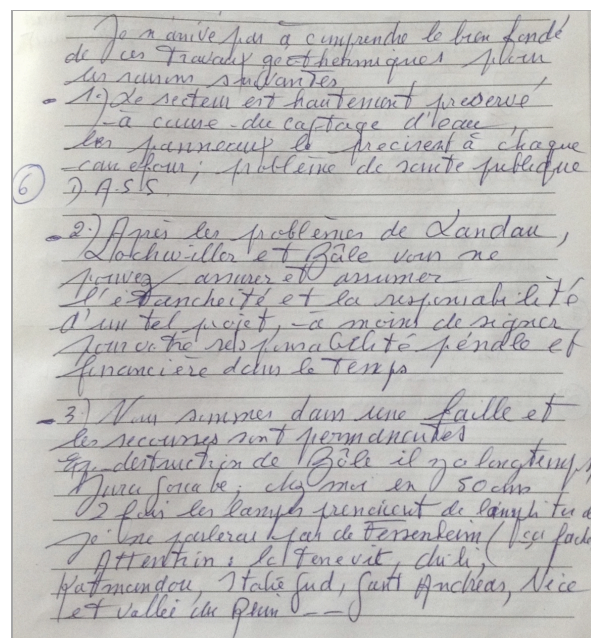 Je n'arrive pas à comprendre le bien fondé
de ces travaux geothermiques pour
les raisons suivantes
- 1.) Le secteur est hautement préservé
à cause du captage d'eau,
les panneaux le précisent à chaque
carrefour; problème de santé publique
6 D.A.S.S.
- 2.) Après les problèmes de Landau,
Lochwiller et Bâle vous ne
pouvez assurer et assumer
l'étanchéité et la responsabilité
d'un tel projet, à moins de signer
pour votre responsabilité pénale et
financière dans le temps
- 3.) Nous sommes dans une faille et
les secousses sont permanentes
Ex. destruction de Bâle il y a longtemps,
Jura Souabe; chez moi en 50 ans
2 fois les lampes prennent de l'amplitude
je ne parlerai pas de Fessenheim (
Attention: la Tenevit, chili,
Katmandou, Italie Sud, Sant Andréas, Nice
et vallée du Rhin ---